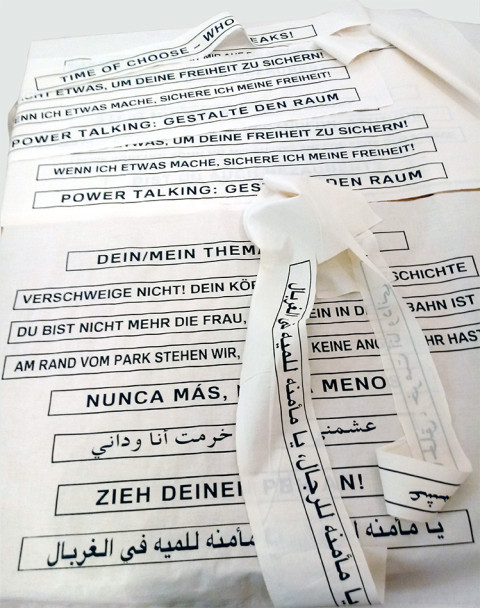 TIME OF CHOOSE – WHO
EAKS!
ETWAS, UM DEINE FREIHEIT ZU SICHERN!
ENN ICH ETWAS MACHE, SICHERE ICH MEINE FREIHEIT!
POWER TALKING: GESTALTE DEN RAUM
ETWAS, UM DEINE FREIHEIT ZU SICHERN!
WENN ICH ETWAS MACHE, SICHERE ICH MEINE FREIHEIT!
POWER TALKING: GES DEN RAUM
DEIN/MEIN THEMA
VERSCHWEIGE NICHT! DEIN KÖR SCHICHTE
DU BIST NICHT MEHR DIE FRAU, EIN IN D BAHN IST
AM RAND VOM PARK STEHEN WIR, KEINE ANG HR HAST
NUNCA MÁS, MENO
عشمني خرمت أنا وداني
ZIEH DEINE N!
يا مأمنه مأمنه للميه في الغربال
يا مأمنه للرجال، يا مأمنه للميه في الغربال